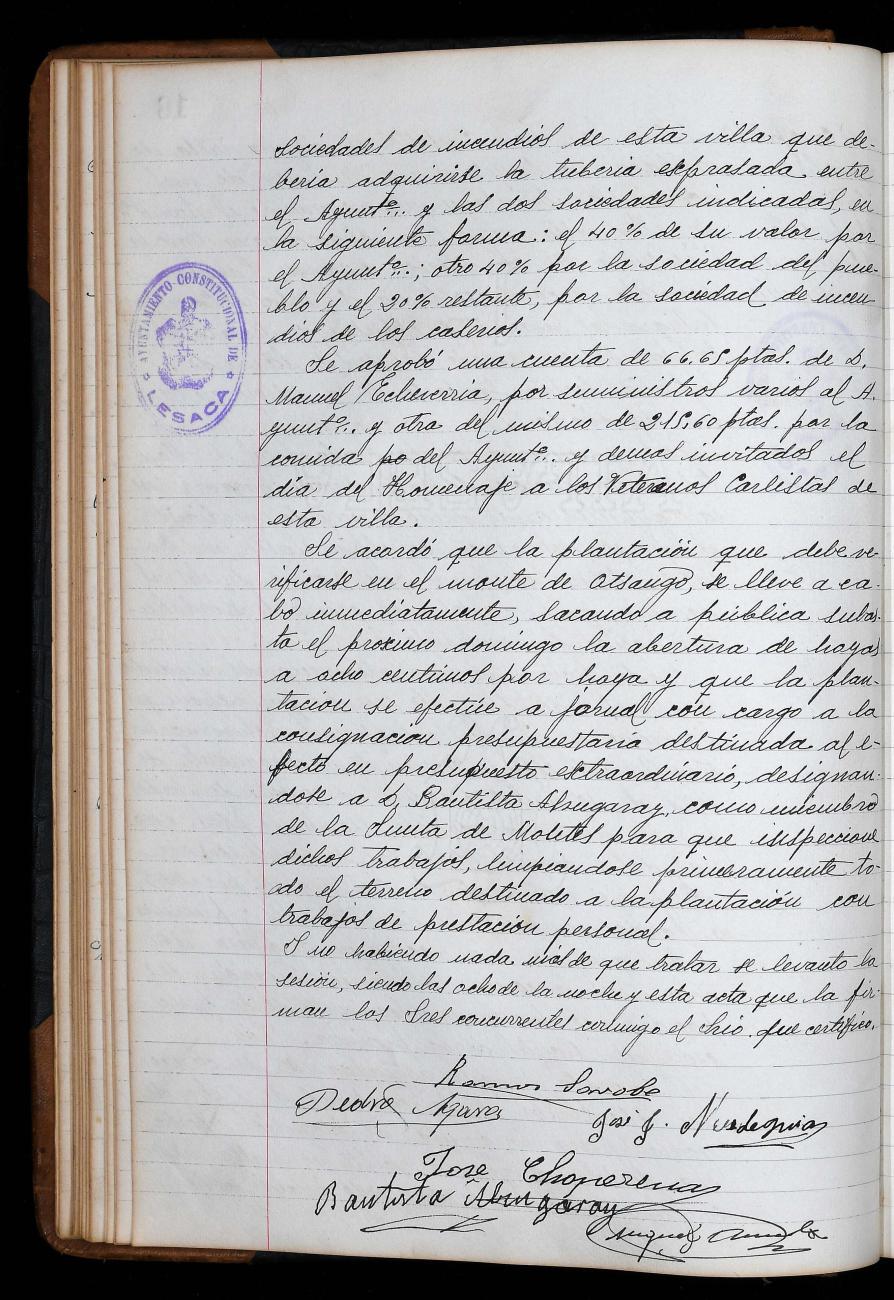 sociedades de incendios de esta villa que de-
beria adquirirse la tuberia exprasada entre
el Ayuntº... y las dos sociedades indicadas, en
la siguiente forma: el 40% de su valor por
el Ayuntº...; otro 40% por la sociedad del pue-
blo y el 20% restante, por la sociedad de incen
dios de los caserios.
Se aprobó una cuenta de 66,65 ptas. de D.
Manuel Echeverria, por suministros varios al A.
yuntº... y otra del mismo de 215,60 ptas. por la
comida po del Ayuntº... y demas invitados el
día del Homenaje a los Veteranos Carlistas de
esta villa.
Se acordó que la plantación que debe ve-
rificarse en el monte de Otsango, se lleve a ca-
bo inmediatamente, sacando a pública subas-
ta el proximo domingo la abertura de hoyas
a ocho centimos por hoya y que la plan-
tacion se efectúe a jornal con cargo a la
consignacion presupuestaria destinada al e-
fecto en presupuesto extraordinario, designan-
dose a D. Bautista Alzugaray, como miembro
de la Junta de Montes para que inspeccione
dichos trabajos, limpiandose primeramente to-
do el terreno destinado a la plantación con
trabajos de prestación personal.
I no habiendo nada más de que tratar se levanto la
sesión, siendo las ocho de la noche y esta acta que la fir-
man los Sres concurrentes conmigo el Srio. que certifico.
AYUNTAMIENTO CONSTITUCIONAL DE
LESACA
Ramon
Pedro
José J.
Jose Choperena
Bautista Alzugaray
Miguel